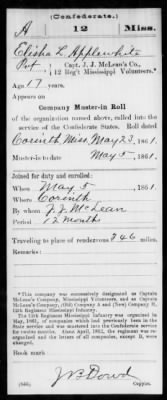 (Confederate.)
A 12 Miss.
Elisha L. Applewhite
Pvt, Capt. J. J. McLean's Co.,
12 Reg't Mississippi Volunteers.*
Age 17 years.
Appears on
Company Muster-in Roll
of the organization named above, called into the
service of the Confederate States. Roll dated
Corinth Miss, May 23, 1861.
Muster-in to date May 5, 1861.
Joined for duty and enrolled:
When May 5, 1861.
Where Corinth
By whom J. J. McLean
Period 12 month
Traveling to place of rendezvous 246 miles.
Remarks:
*This company was successively designated as Captain
McLean's Company, Mississippi Volunteers, and as Captain
McLean's Company, (Old) Company A and (New) Company
12th Regiment Mississippi Infantry.
The 12th Regiment Mississippi Infantry was organized in
May, 1861, of companies which had previously been in the
State service and was mustered into the Confederate service
for twelve months. About April, 1862, the regiment was re-
organized and the letters of all companies, except B, were
changed.
Book mark:
J B Dowd
(646) Copyist.